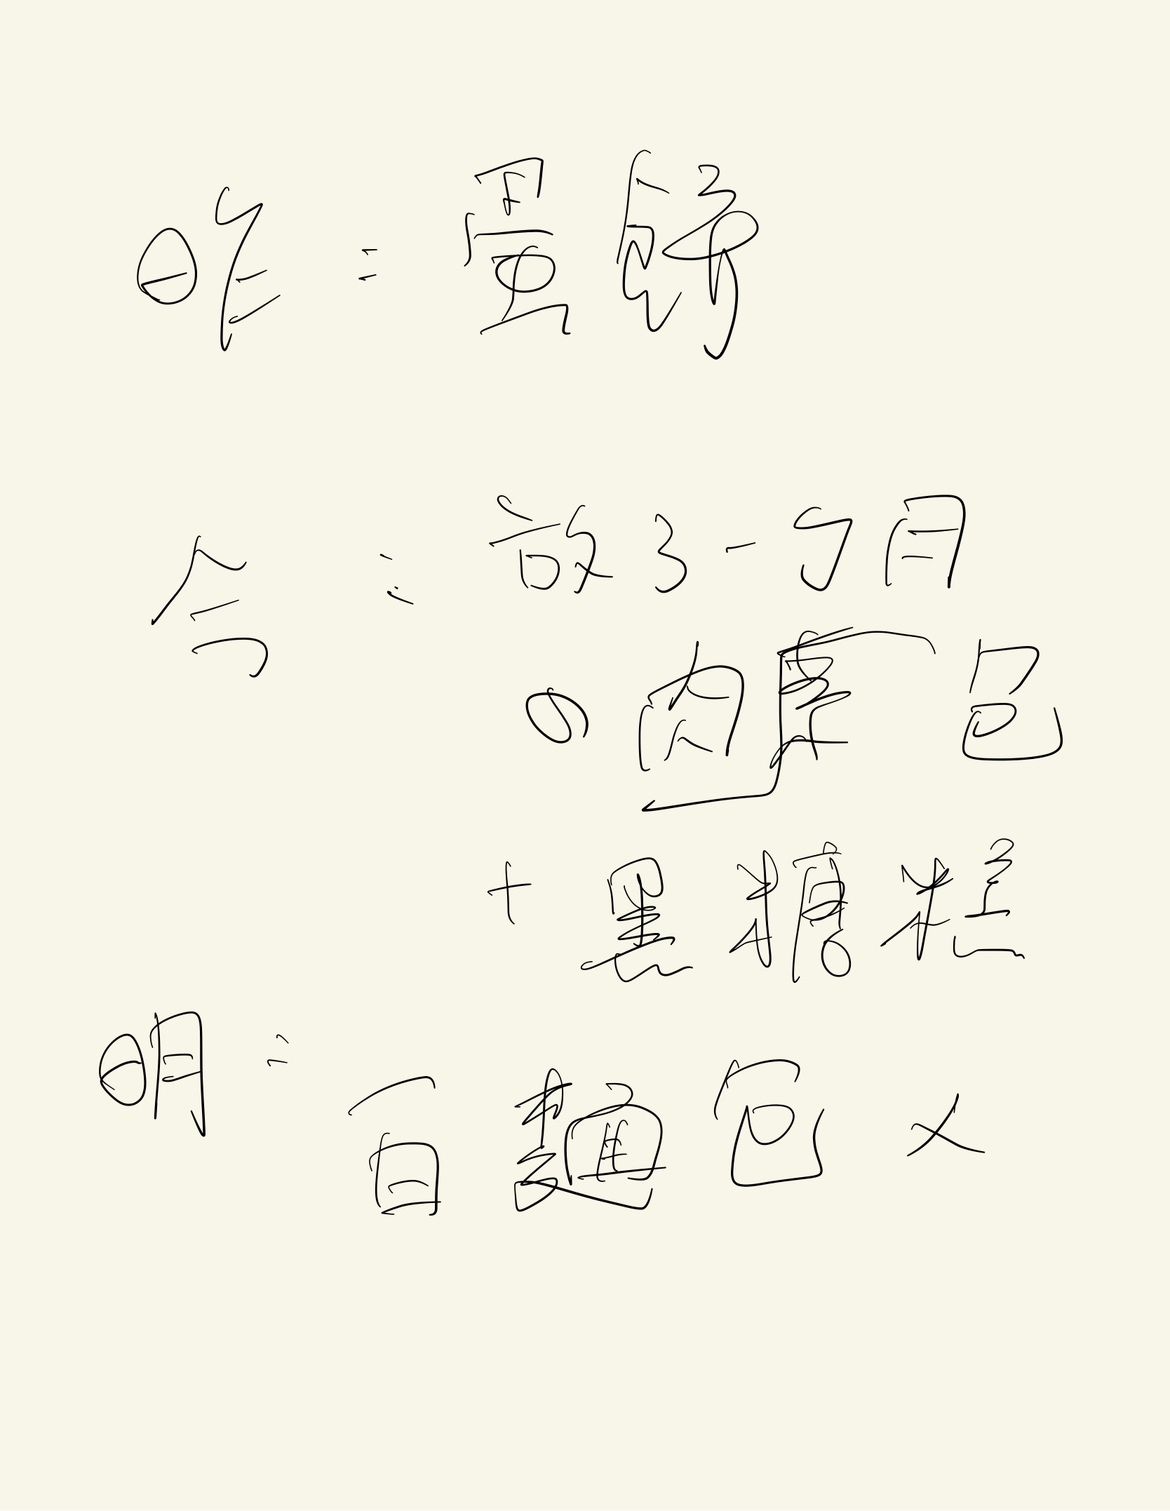 昨：蛋餅
今：放了一個月
の肉桂包
+黑糖糕
明：白麵包 x